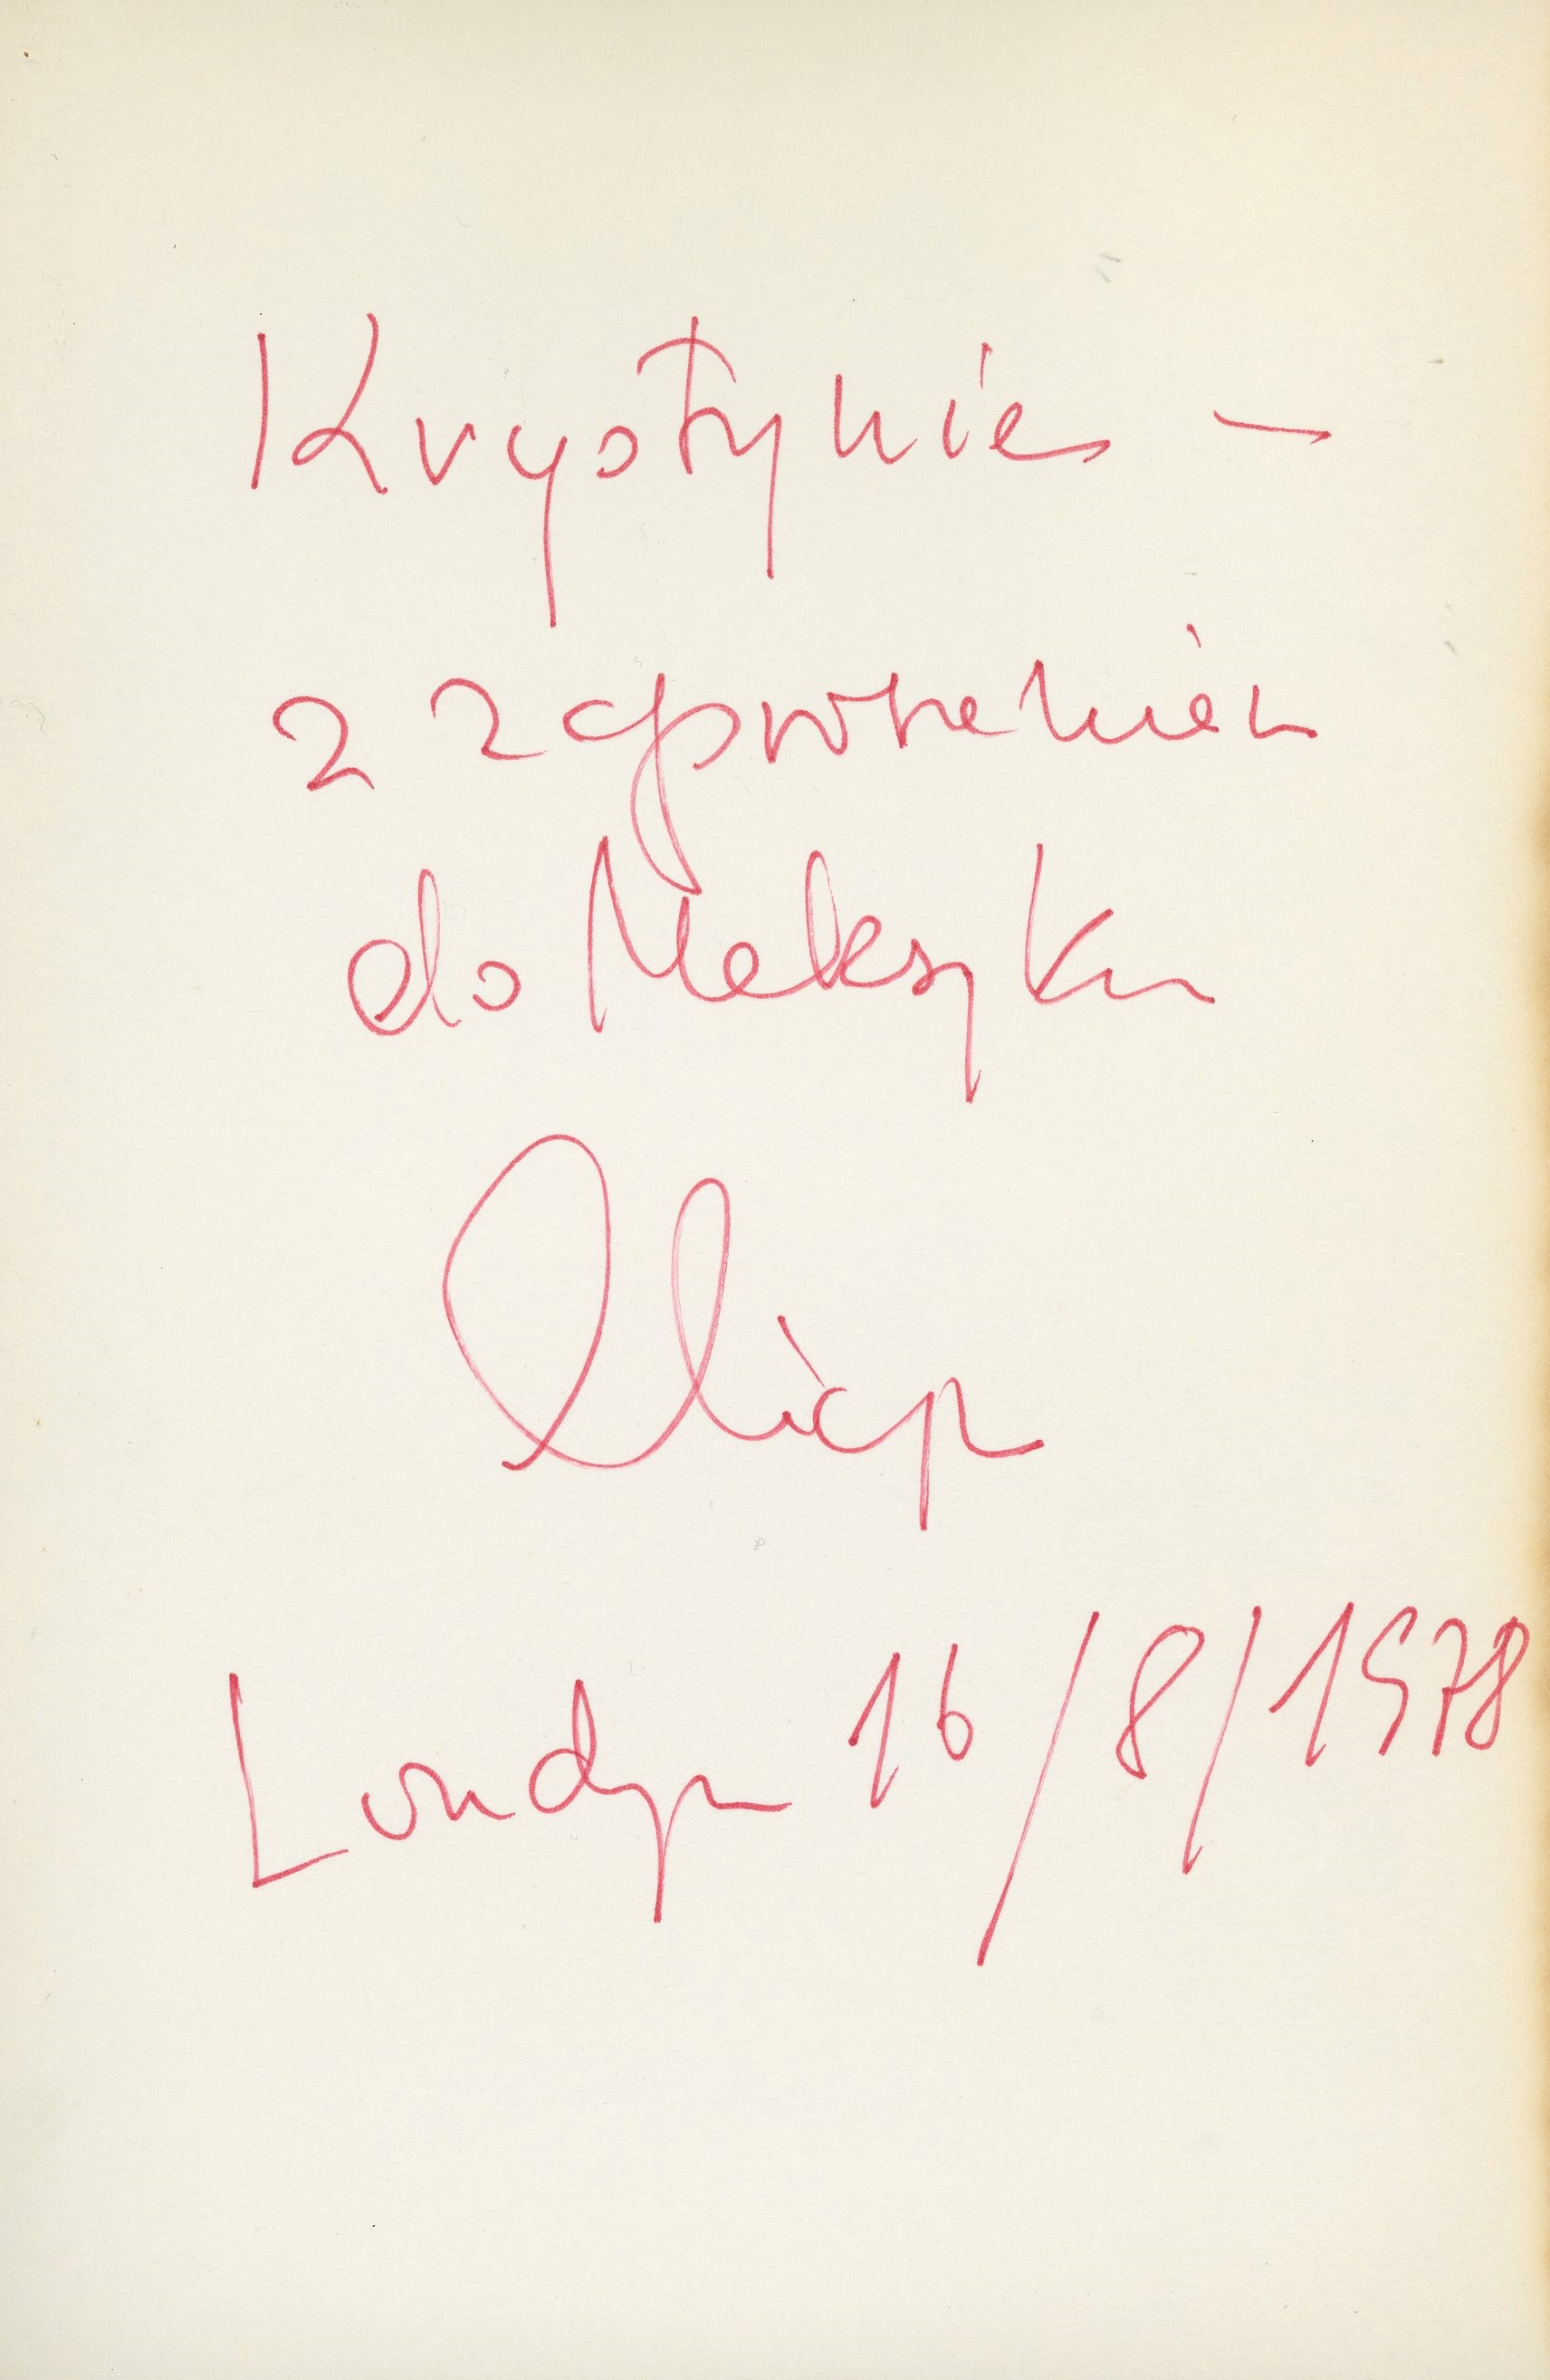 Krystynie —
z zaproszeniem
do Meksyku
Alicja
Londyn 16/8/1978